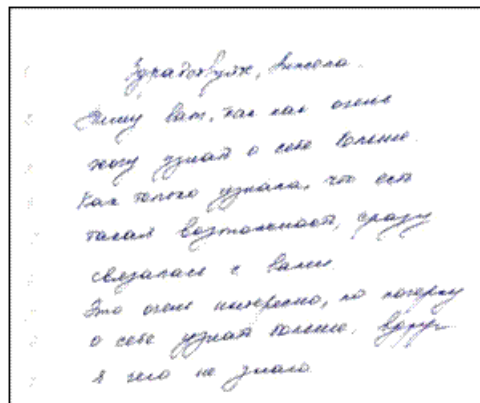 Здравствуйте, Анжела.
Пишу вам, так как очень
хочу узнать о себе больше.
Как только узнала, что есть
такая возможность, сразу
связалась с вами.
Это очень интересно, по почерку
о себе узнать больше, вдруг
я чего не знаю.